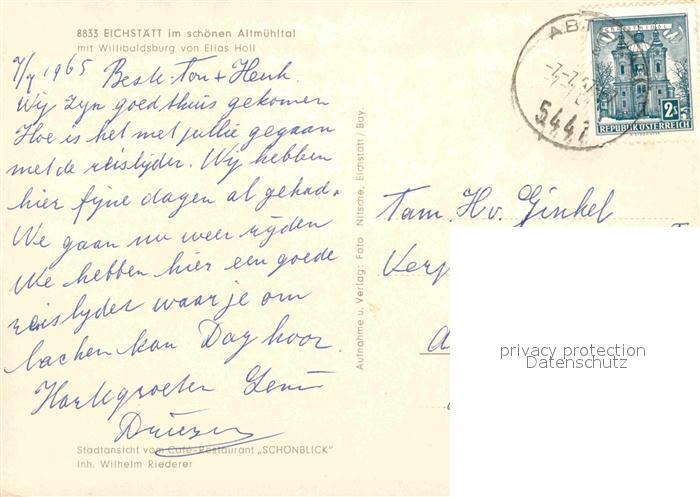 8833 EICHSTÄTT im schönen Altmühltal
mit Willibaldsburg von Elias Holl
7/7 1965 Beste Ton + Henk.
Wij zyn goed thuis gekomen
Hoe is het met jullie gegaan
met de reislyder. Wij hebben
hier fijne dagen al gehad.
We gaan nu weer rijden
We hebben hier een goede
reislyder waar je om
lachen kan Dag hoor
Hartegroeten
Stadtansicht vom Café-Restaurant „SCHÖNBLICK"
Inh. Wilhelm Riederer
Aufnahme u. Verlag: Foto Nitsche, Eichstätt / Bay.
2s
REPUBLIK ÖSTERREICH
Fam. H. v. Ginkel
privacy protection
Datenschutz